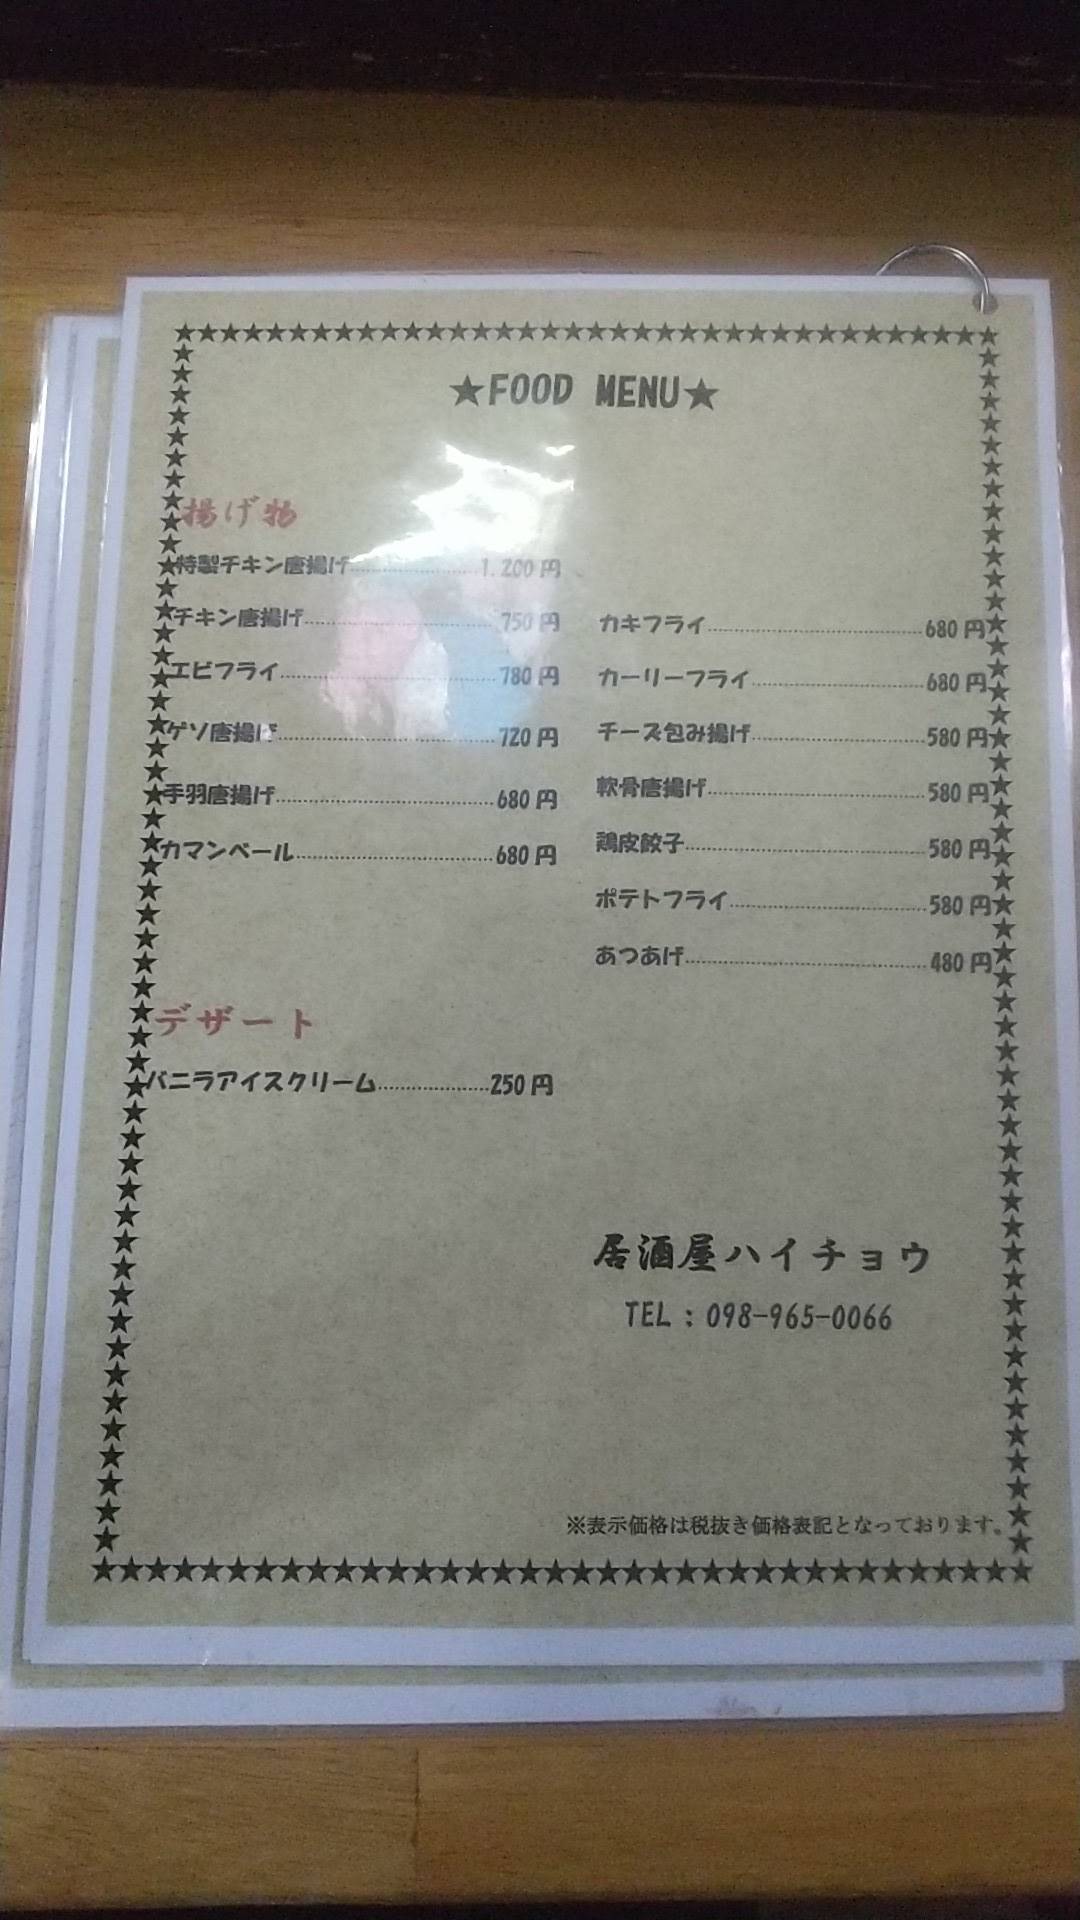 ★FOOD MENU★
揚げ物
特製チキン唐揚げ 1,200円
チキン唐揚げ 750円
エビフライ 780円
ゲソ唐揚げ 720円
手羽唐揚げ 680円
カマンベール 680円
カキフライ 680円
カーリーフライ 680円
チーズ包み揚げ 580円
軟骨唐揚げ 580円
鶏皮餃子 580円
ポテトフライ 580円
あつあげ 480円
デザート
バニラアイスクリーム 250円
居酒屋ハイチョウ
TEL：098-965-0066
※表示価格は税抜き価格表記となっております。